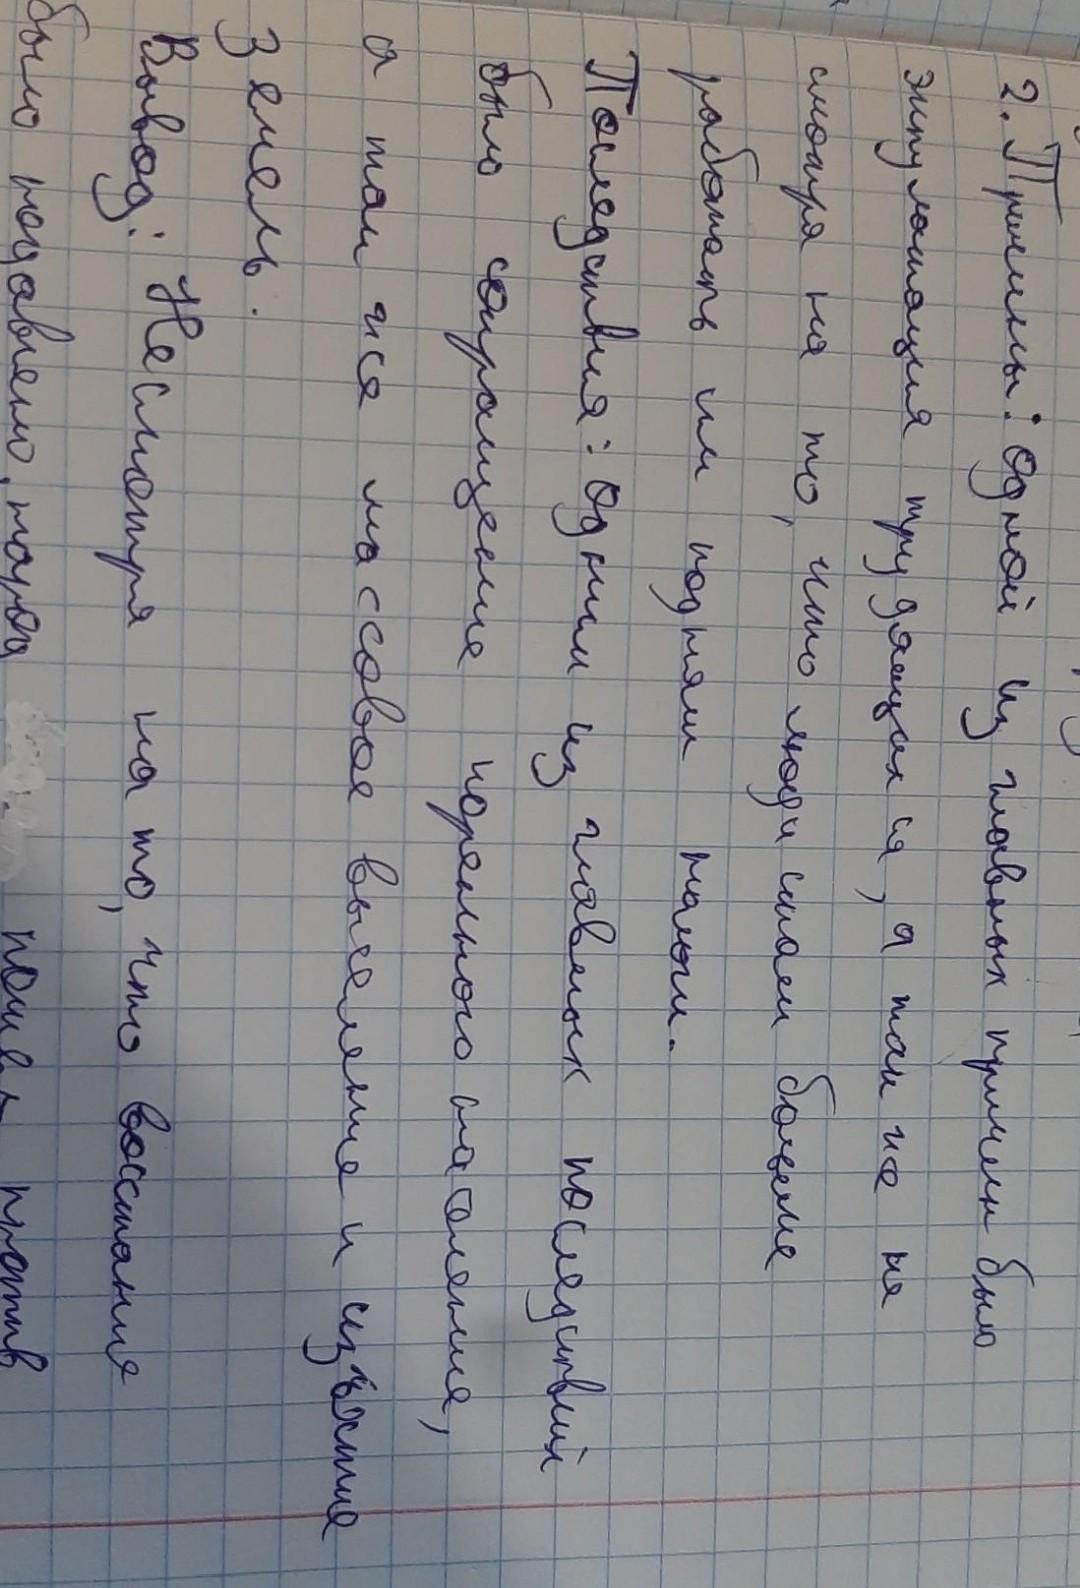 2. Причины: Одной из главных причин было
эксплуатация трудящихся, а так же не
смотря на то, что люди стали больные
работать им подням
Последствия: Одним из главных последствий
было сокращение коренного населения,
а так же массовое выселение и изъятие
Земель.
Вывод: Несмотря на то, что восстание
было подавлено, народ против